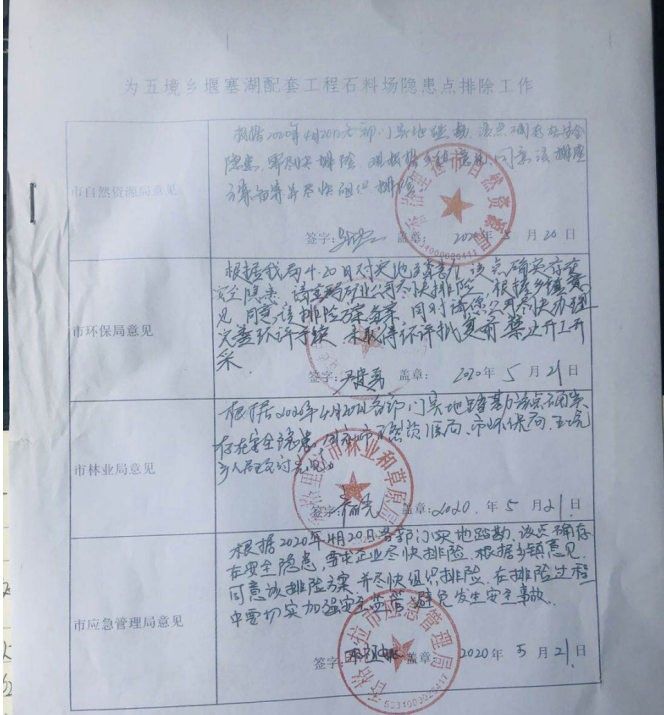 为五境乡堰塞湖配套工程石料场隐患点排除工作
根据2020年4月20日各部门实地踏勘,该点确存在安全
隐患,需尽快排险,
同意该排险
方案 并尽快组织排险。
市自然资源局意见
签字: 盖章: 2020年5月20日
根据我局4.20日对实地踏勘,该点确实存在
安全隐患,请 矿业公司尽快排险,根据乡镇意
见,同意该排险方案备案,同时 尽快办理
完善环评手续,未取得环评批复前禁止开工开
采.
市环保局意见
签字: 盖章: 2020年5月21日
根据2020年4月20日各部门实地踏勘该点确实
存在安全隐患, 市自然资源局、市环保局、五境
乡人民政府意见。
市林业局意见
签字: 盖章: 2020.年5月21日
根据2020年4月20日各部门实地踏勘,该点确存
在安全隐患,要求企业尽快排险.根据乡镇意见,
同意该排险方案 并尽快组织排险,在排险过程
中要切实加强安全监管,避免发生安全事故.
市应急管理局意见
签字: 盖章: 2020年5月21日.
香格里拉市自然资源局
香格里拉市林业和草原局
香格里拉市应急管理局